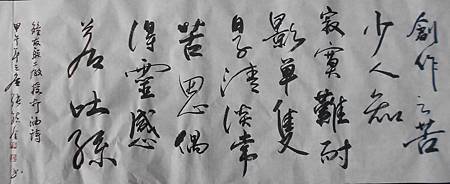 創作之苦
少人知
寂寞難耐
影單隻
日子清淡常
苦思偶
得靈感
若吐絲
打油詩
甲午年